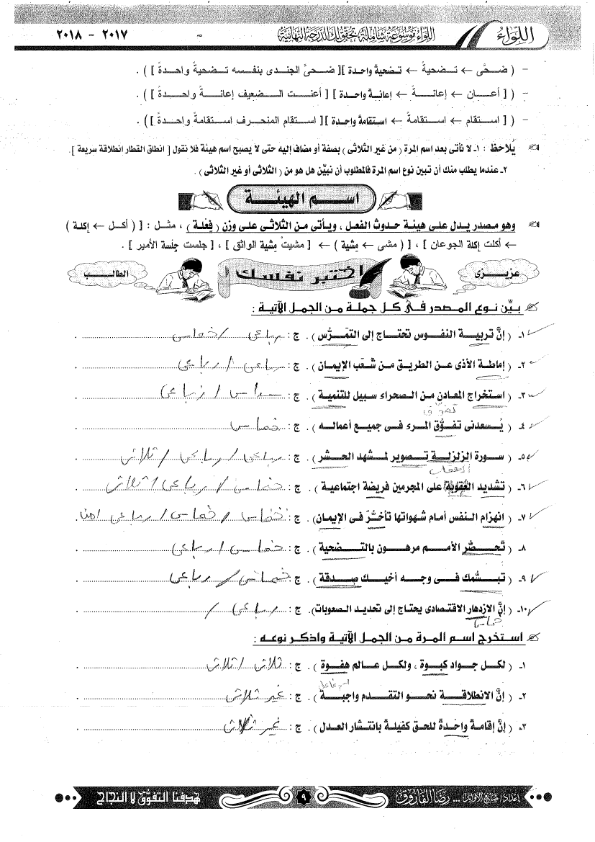 اللواء اللواء موسوعة شاملة تحقق لك الدرجة النهائية ٢٠١٧ - ٢٠١٨
- ( ضحَّى ← تضحيةً ← تضحيةً واحدة ][ ضحى الجندى بنفسه تضحيةً واحدةً ] ) .
- ( [ أعـان ← إعانـةً ← إعانـةً واحدة ][ أعنت الـضعيف إعانـةً واحـدةً ] ) .
- ( [ استقام ← استقامةً ← استقامةً واحدة ][ استقام المنحرف استقامةً واحدةً ] ) .
يُلاحظ : ١- لا نأتى بعد اسم المرة ( من غير الثلاثى ) بصفة أو مضاف إليه حتى لا يصبح اسم هيئة فلا نقول [ انطلق القطار انطلاقة سريعة ].
٢- عندما يطلب منك أن تبين نوع اسم المرة فالمطلوب أن نبيِّن هل هو من ( الثلاثى أو غير الثلاثى ) .
اسـم الهيئـة
وهو مصدر يدل على هيئة حدوث الفعل ، ويأتى من الثلاثى على وزن ( فِعْلة ) ، مثل : [ ( أكل ← إكلة )
← أكلت إكلة الجوعان ] ، [ ( مشى ← مِشية ) ← مشيتُ مِشية الواثق ] ، [ جلست جِلسة الأمير ] .
عزيزى اختبر نفسك الطالب
بيِّن نوع المصدر فى كل جملة من الجمل الآتية :
١- ( إنَّ تربيـة النفوس تحتاج إلى التمرُّس ) . ج : رباعى / خماسى
٢- ( إماطة الأذى عن الطريق من شُعَب الإيمان ) . ج : رباعى / رباعى
٣- ( استخراج المعادن من الصحراء سبيل للتنمية ) . ج : سداسى / رباعى
تفوق
٤- ( يُسعدنى تفوُّق المرء فى جميع أعماله ) . ج : خماسى
٥- ( سورة الزلزلة تصوير لمشهد الحشر ) . ج : رباعى / رباعى / ثلاثى
٦- ( تشديد العقوبة على المجرمين فريضة اجتماعية ) . ج : خماسى / رباعى / ثلاثى
٧- ( انهزام النفس أمام شهواتها تأخُّر فى الإيمان ) . ج : خماسى / خماسى / رباعى
٨- ( تحضُّر الأمـم مرهون بالتضحية ) . ج : خماسى / رباعى
٩- ( تبسُّمك فـى وجـه أخيـك صدقة ) . ج : خماسى / رباعى
١٠- ( إنَّ الازدهار الاقتصادى يحتاج إلى تحديد الصعوبات ) . ج : رباعى /
خماسى
استخرج اسم المرة من الجمل الآتية واذكر نوعه :
١- ( لكل جـواد كبوة ، ولكل عـالم هفوة ) . ج : ثلاثى / ثلاثى
٢- ( إنَّ الانطلاقـة نحـو التقـدم واجبـة ) . ج : غير ثلاثى
٣- ( إنَّ إقامةً واحدةً للحق كفيلة بانتشار العدل ) . ج : غير ثلاثى
رضا الفاروق ٩ هدفنا التفوق لا النجاح